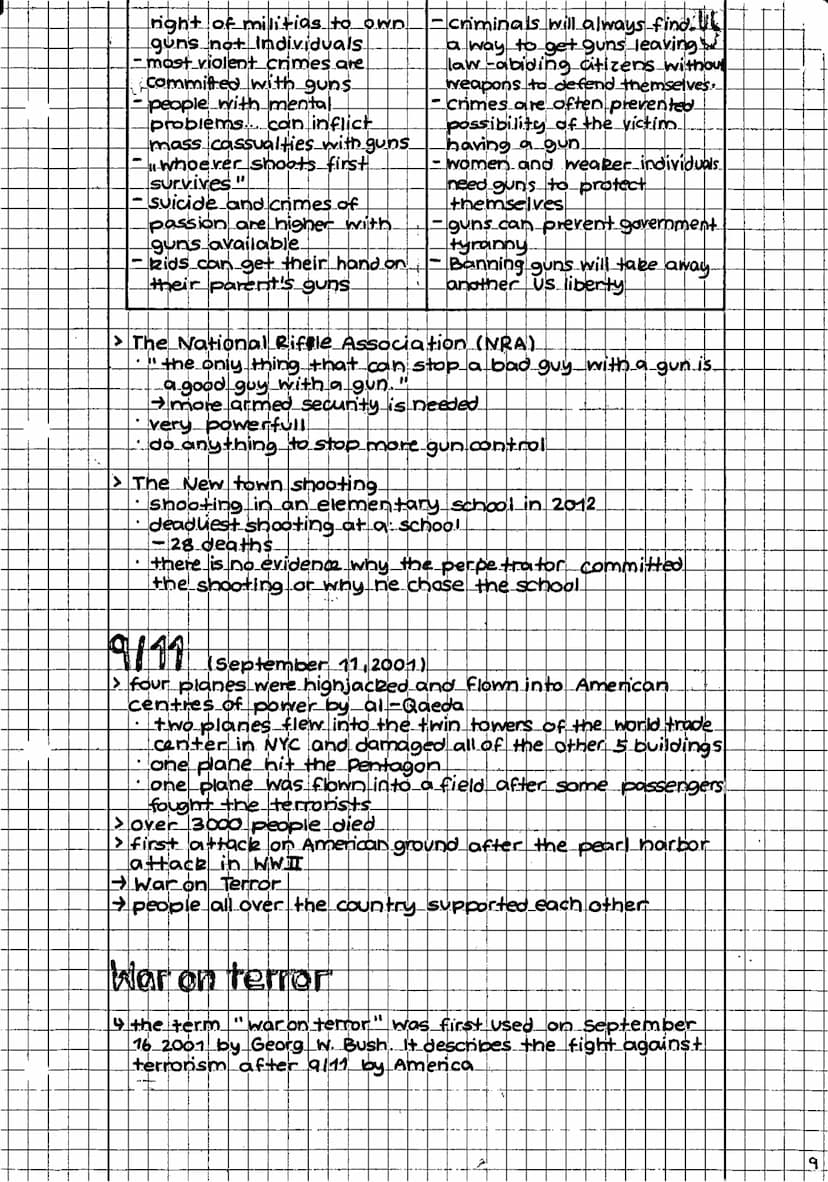 right of militias to own
guns not Individuals
- most violent crimes are
committed with guns
- people with mental
problems... can inflict
mass cassualties with guns
- "whoever shoots first
survives"
- suicide and crimes of
passion are higher with
guns available
- kids can get their hand on
their parent's guns
- criminals will always find
a way to get guns leaving
law-abiding citizens without
weapons to defend themselves.
- crimes are often prevented
possibility of the victim
having a gun
- women and weaker individuals
need guns to protect
themselves
- guns can prevent government
tyranny
- Banning guns will take away
another US liberty
> The National Riffle Association (NRA)
· "the only thing that can stop a bad guy with a gun is
a good guy with a gun."
→ more armed security is needed
· very powerfull
· do anything to stop more gun control
> The New town shooting
· shooting in an elementary school in 2012
· deadliest shooting at a school
- 28 deaths
· there is no evidence why the perpetrator committed
the shooting or why he chose the school
9/11 (September 11, 2001)
> four planes were highjacked and flown into American
centres of power by al-Qaeda
· two planes flew into the twin towers of the world trade
center in NYC and damaged all of the other 5 buildings
· one plane hit the Pentagon
· one plane was flown into a field after some passengers
fought the terrorists
> over 3000 people died
> first attack on American ground after the pearl harbor
attack in WWII
→ War on Terror
→ people all over the country supported each other
War on terror
↳ the term "war on terror" was first used on september
16 2001 by Georg W. Bush. It describes the fight against
terrorism after 9/11 by America
9